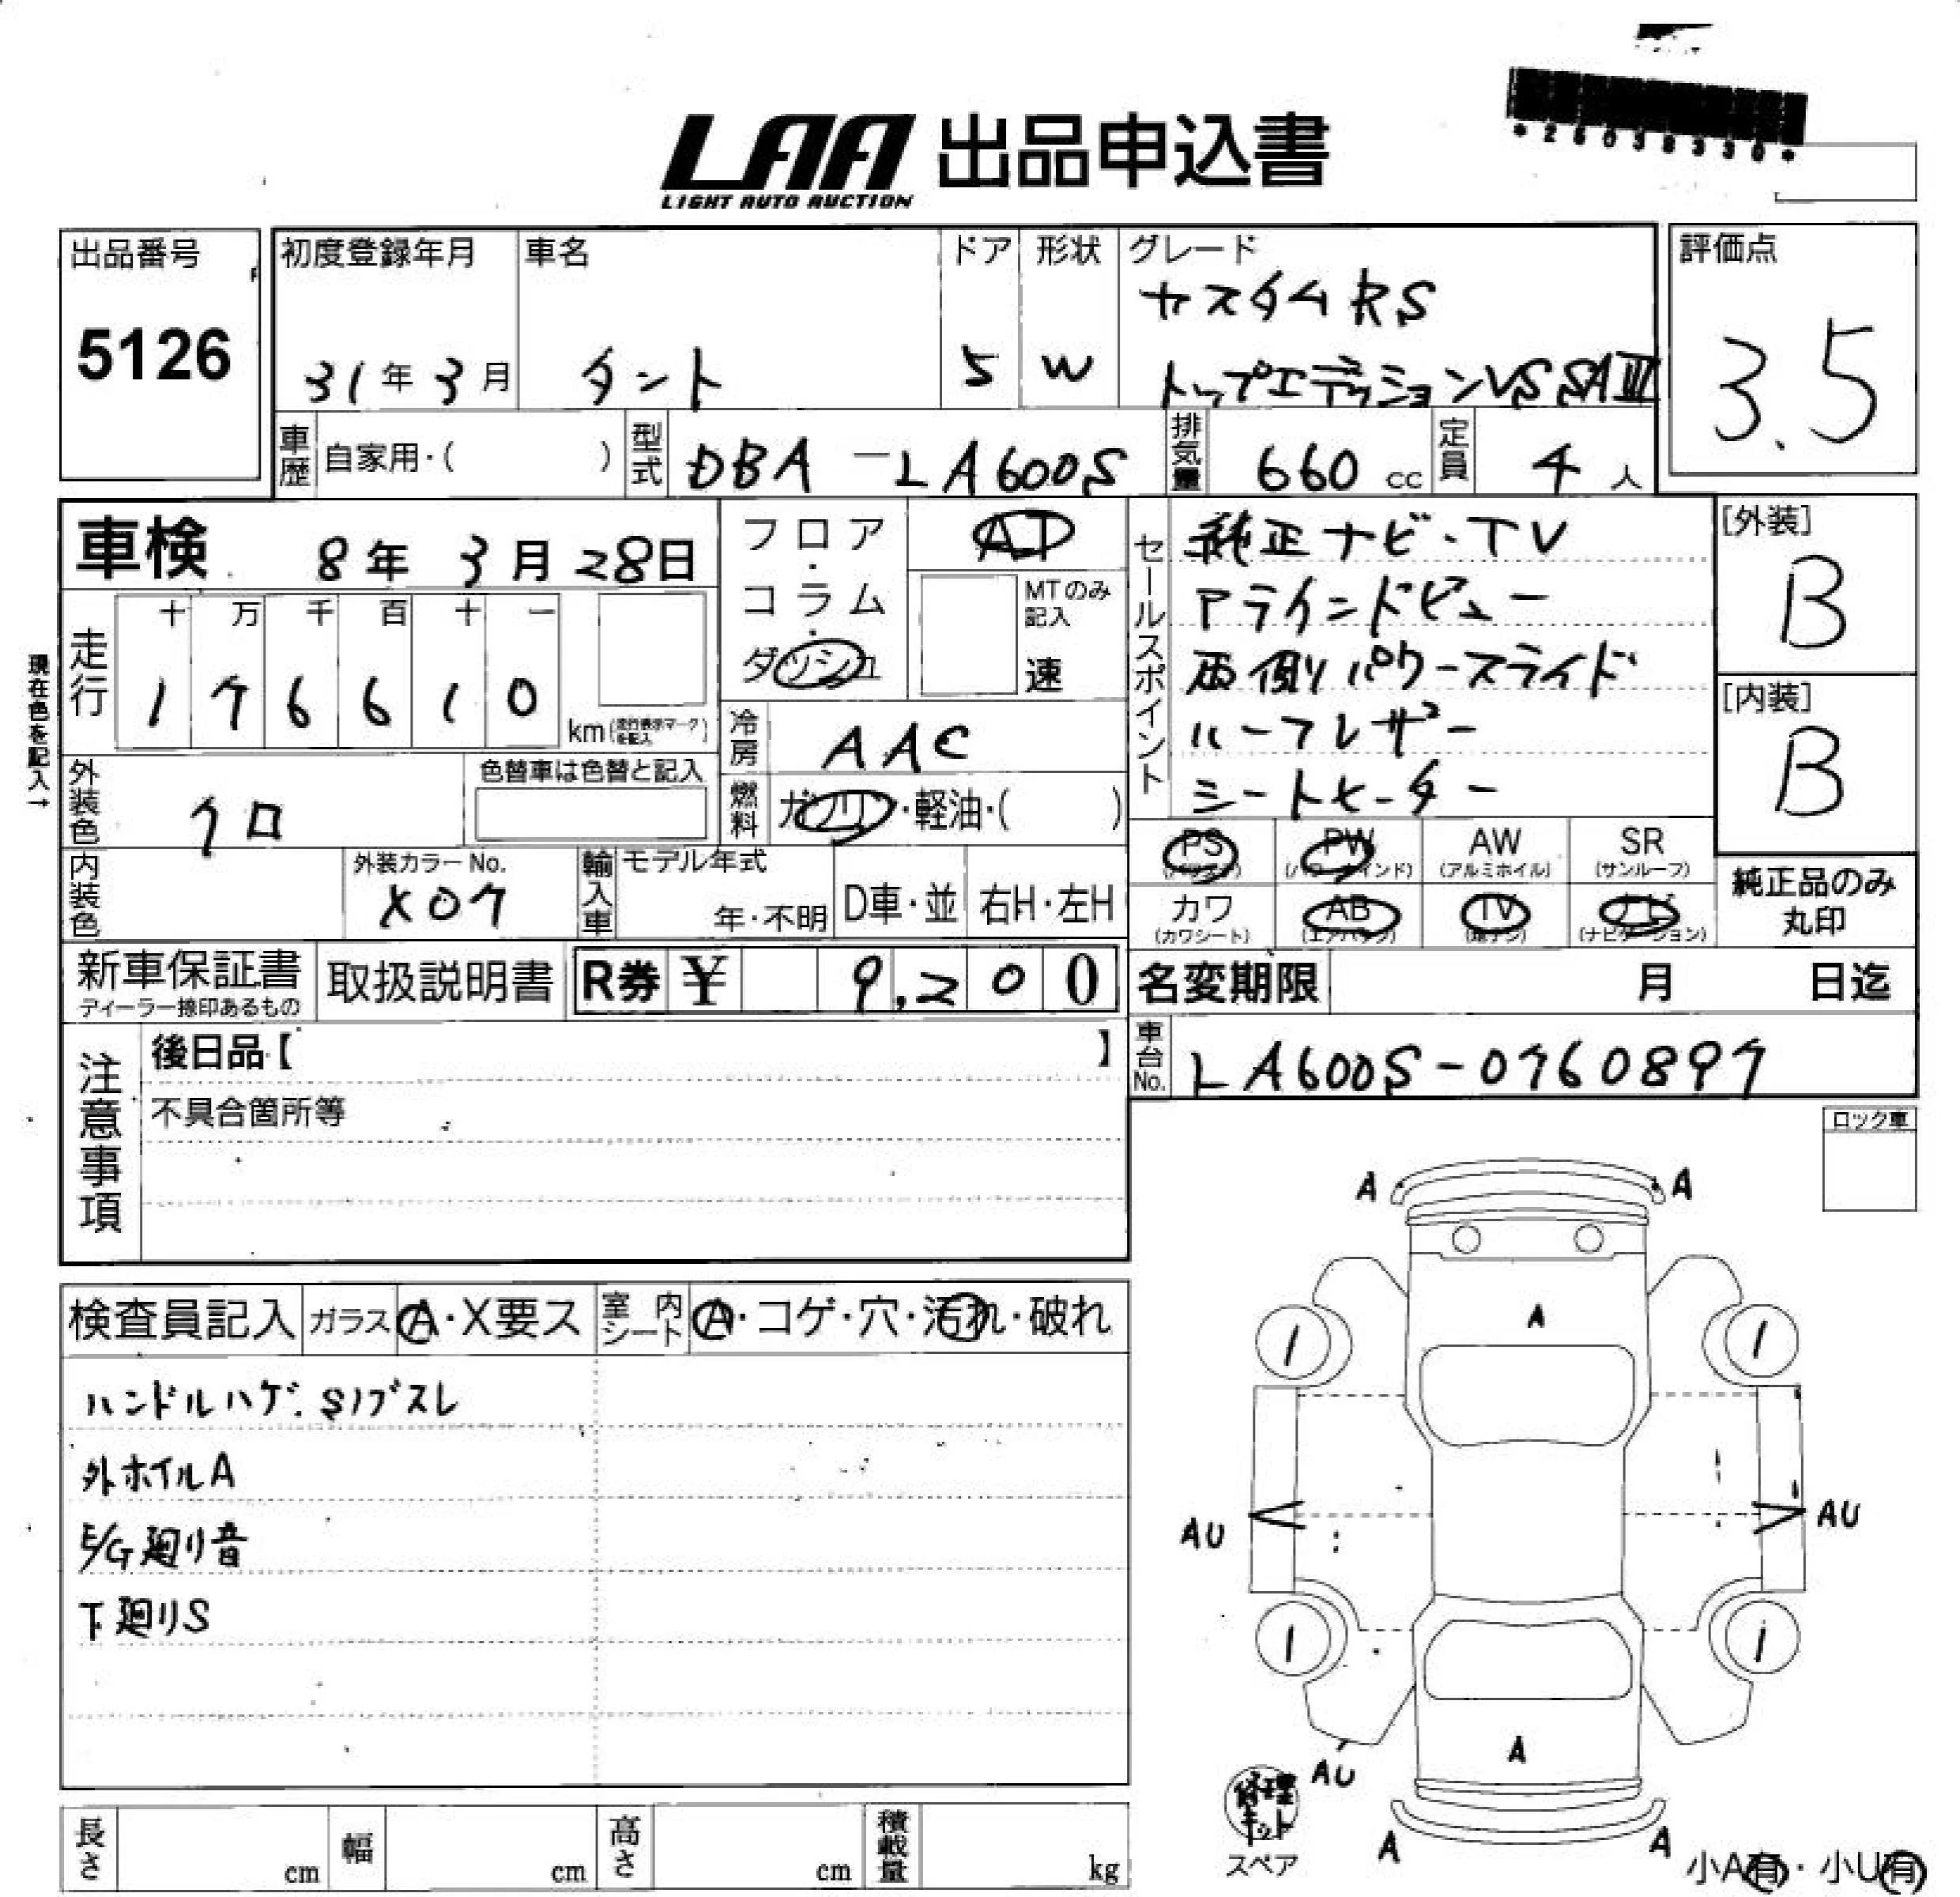 *26038330*
LAA 出品申込書
LIGHT AUTO AUCTION
出品番号
5126
初度登録年月
31年3月
車名
タント
ドア
5
形状
W
グレード
カスタムRS
トップエディションVS SAⅢ
評価点
3.5
車歴 自家用・( )
型式 DBA-LA600S
排気量 660 cc
定員 4 人
車検 8年3月28日
フロア・コラム・ダッシュ
AT
MTのみ記入
速
セールスポイント
純正ナビ・TV
アラインドビュー
両側パワースライド
ハーフレザー
シートヒーター
[外装]
B
[内装]
B
現在色を記入→
走行
十 万 千 百 十 一
1 7 6 6 1 0
km(走行表示マークを記入)
冷房 AAC
外装色 クロ
色替車は色替と記入
燃料 ガソリン・軽油・( )
内装色
外装カラーNo.
X07
輸入車
モデル年式
年・不明
D車・並
右H・左H
PS
(パワステ)
PW
(パワーウインド)
AW
(アルミホイル)
SR
(サンルーフ)
カワ
(カワシート)
AB
(エアバッグ)
TV
ナビ
(ナビゲーション)
純正品のみ
丸印
新車保証書
ディーラー捺印あるもの
取扱説明書
R券 ¥ 9,200
名変期限 月 日迄
車台No. LA600S-0760897
注意事項
後日品【 】
不具合箇所等
ロック車
検査員記入
ガラス A・X要ス
室内シート A・コゲ・穴・汚れ・破れ
ハンドルハゲ.Sノブスレ
外ホイルA
E/G廻り音
下廻りS
A A
A
1 1
AU AU
1 1
AU
A
A A
修理キット
スペア
小A有・小U有
長さ cm
幅 cm
高さ cm
積載量 kg